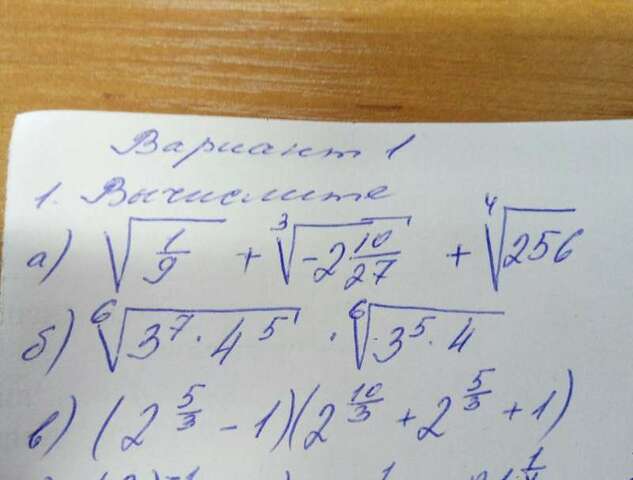 Вариант 1
1. Вычислите
а) √(1/9) + ∛(-2 10/27) + ⁴√256
б) ⁶√(3⁷ · 4⁵) · ⁶√(3⁵ · 4)
в) (2^(5/3) - 1)(2^(10/3) + 2^(5/3) + 1)